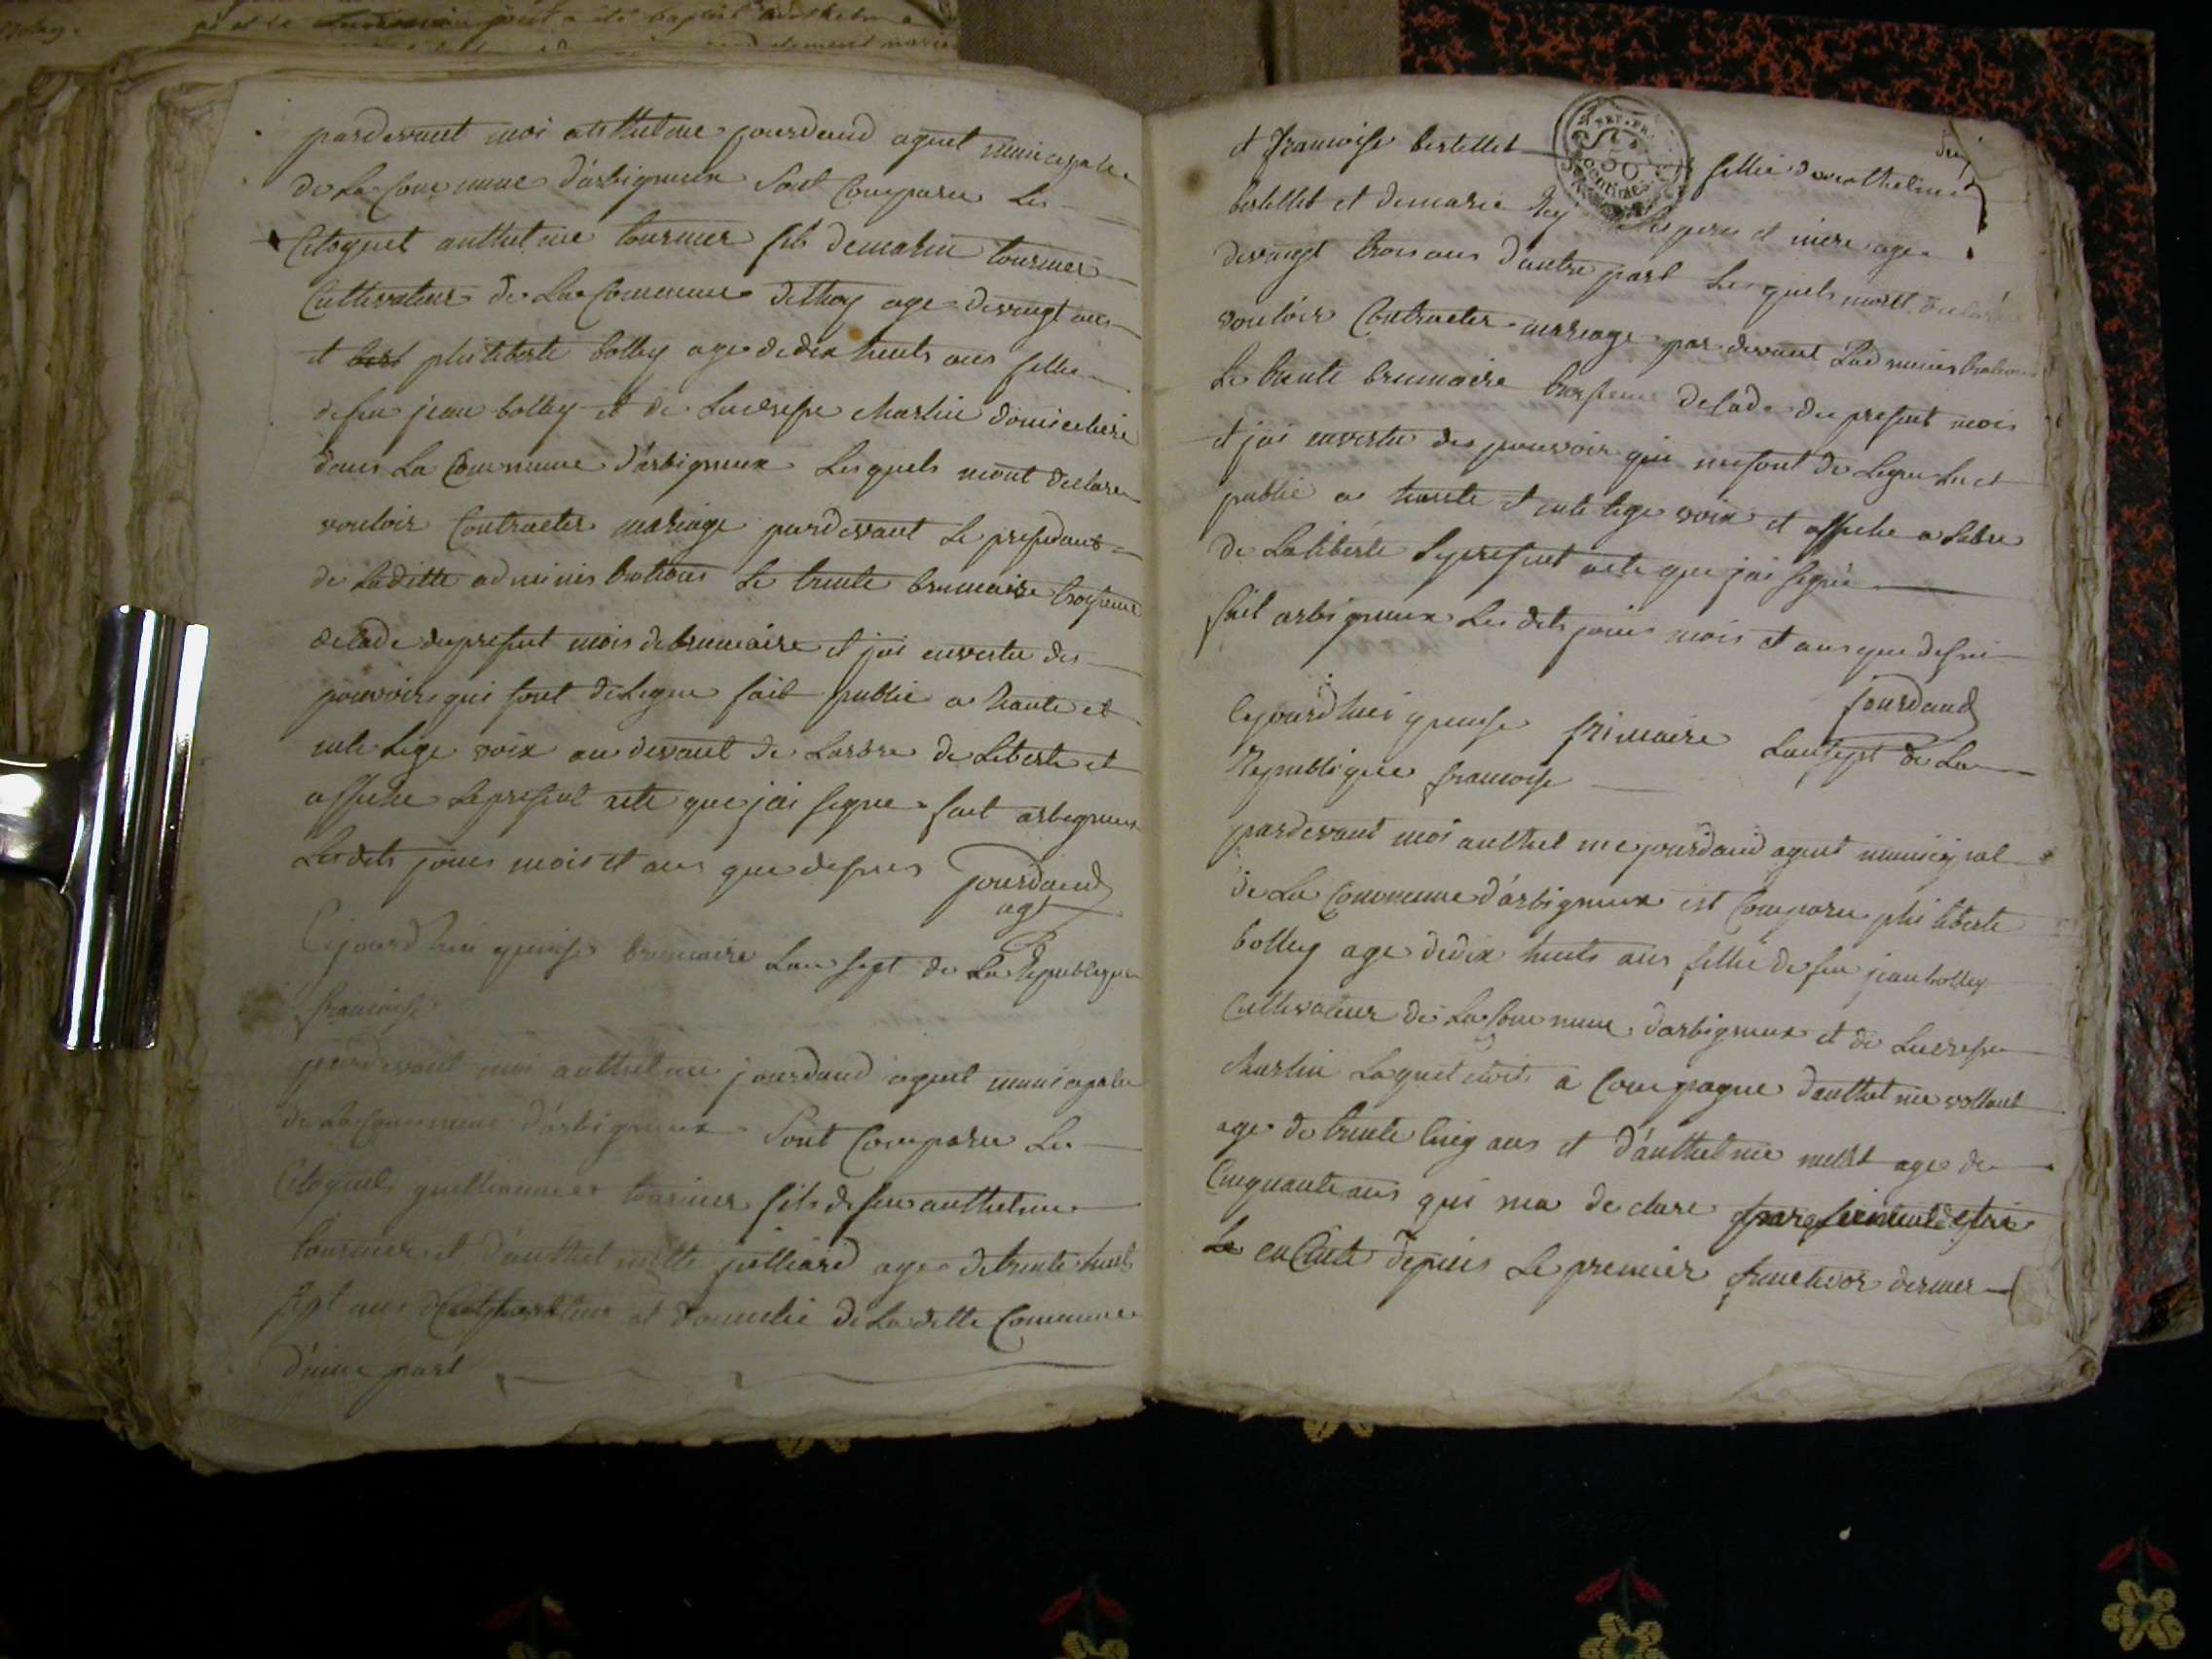 pardevant moi anthelme jourdand agent municipale
de La Commune d'arbignieux Sont Comparu Les
Citoyent anthelme tournier fils de martin tournier
Cultivateur de La Commune de thoy age de vingt ans
et philiberte bolley age de dix huits ans fillie
de feu jean bolley et de Lucresse Martin domiceliere
dans La Commune d'arbignieux Les quels mont declare
vouloir Contracter mariage pardevant Le presidant
de Laditte administrations Le trente brumaire troisieme
decade du present mois de brumaire et jai envertu des
pouvoirs qui sont delegue fait publie a haute et
intelege voix au devant de Larbre de Liberte et
affiche Le present acte que jai signe fait arbignieux
Les dits jours mois et ans que dessus jourdand
agt
Cejourd'hui quinse brumaire Lan sept de La Republique
francoise
pardevant moi anthelme jourdand agent municipale
de La Commune d'arbignieux Sont Comparu Les
Citoyents tournier fils de feu anthelme
tournier et d'anthelmette julliard age de trente
sept ans Cultivateur et domicilie de La ditte Commune
d'une part
et francoise bertellet fillie d'anthelme
bertellet et de marie Rey Les pere et mere age
de vingt trois ans d'autre part Les quels mont declare
vouloir Contracter mariage par devant Ladministrations
Le trente brumaire troisieme decade du present mois
et jai envertu des pouvoir qui me sont delegue Lu et
publie a haute et intelege voix et affiche a Labre
de La liberte Le present acte que jai signe
fait arbignieux Les dits jours mois et ans que dessus
jourdand
Cejourd'hui quinse frimaire Lan sept de La
Republique francoise
pardevant moi anthelme jourdand agent municipal
de La Commune d'arbignieux est Comparu philiberte
bolley age de dix huits ans fillie de feu jean bolley
Cultivateur de La Commune d'arbignieux et de Lucresse
Martin Laquel etoit a Compagne d'anthelme vollant
age de trente cinq ans et d'anthelme age de
Cinquante ans qui ma declare
enCinte depuis Le premier fructidor dernier